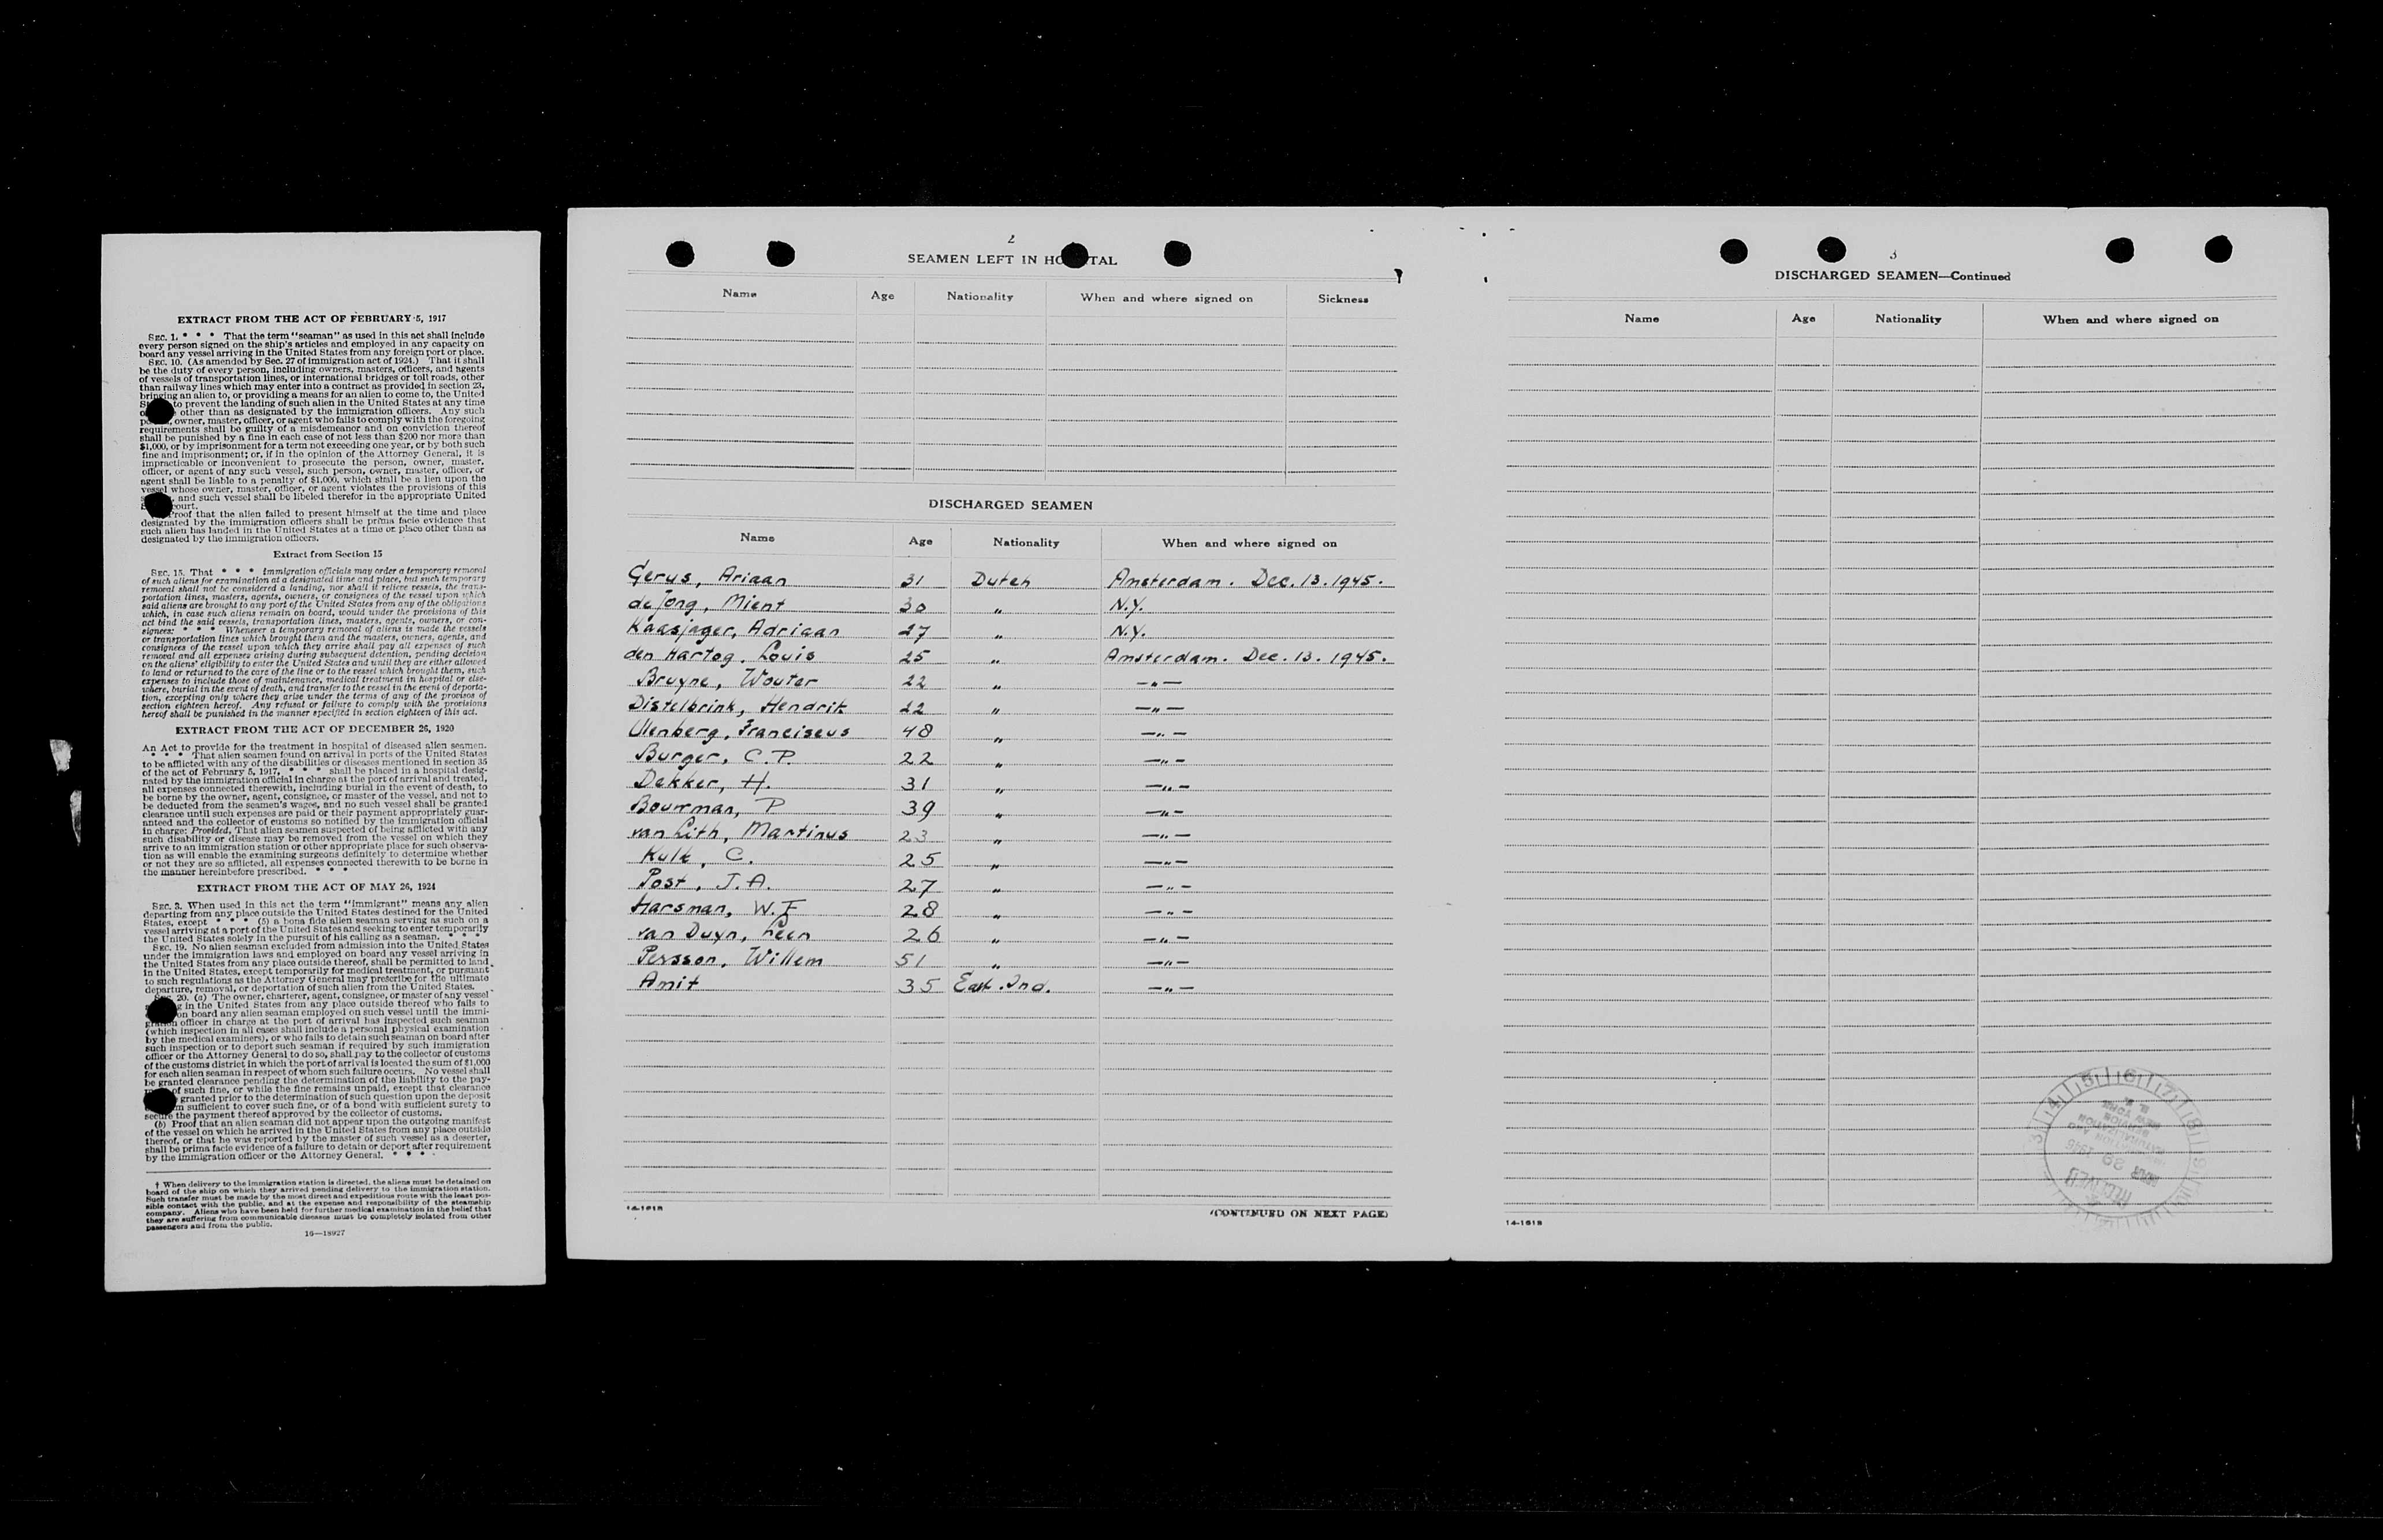 EXTRACT FROM THE ACT OF FEBRUARY 5, 1917
SEC. 1. * * * That the term "seaman" as used in this act shall include
every person signed on the ship's articles and employed in any capacity on
board any vessel arriving in the United States from any foreign port or place.
SEC. 10. (As amended by Sec. 27 of immigration act of 1924.) That it shall
be the duty of every person, including owners, masters, officers, and agents
of vessels of transportation lines, or international bridges or toll roads, other
than railway lines which may enter into a contract as provided in section 23,
bringing an alien to, or providing a means for an alien to come to, the United
to prevent the landing of such alien in the United States at any time
other than as designated by the immigration officers. Any such
owner, master, officer, or agent who fails to comply with the foregoing
requirements shall be guilty of a misdemeanor and on conviction thereof
shall be punished by a fine in each case of not less than $200 nor more than
$1,000, or by imprisonment for a term not exceeding one year, or by both such
fine and imprisonment; or, if in the opinion of the Attorney General, it is
impracticable or inconvenient to prosecute the person, owner, master,
officer, or agent of any such vessel, such person, owner, master, officer, or
agent shall be liable to a penalty of $1,000, which shall be a lien upon the
vessel whose owner, master, officer, or agent violates the provisions of this
, and such vessel shall be libeled therefor in the appropriate United
court.
Proof that the alien failed to present himself at the time and place
designated by the immigration officers shall be prima facie evidence that
such alien has landed in the United States at a time or place other than as
designated by the immigration officers.
Extract from Section 15
SEC. 15. That * * * immigration officials may order a temporary removal
of such aliens for examination at a designated time and place, but such temporary
removal shall not be considered a landing, nor shall it relieve vessels, the trans-
portation lines, masters, agents, owners, or consignees of the vessel upon which
said aliens are brought to any port of the United States from any of the obligations
which, in case such aliens remain on board, would under the provisions of this
act bind the said vessels, transportation lines, masters, agents, owners, or con-
signees: * * * Whenever a temporary removal of aliens is made the vessels
or transportation lines which brought them and the masters, owners, agents, and
consignees of the vessel upon which they arrive shall pay all expenses of such
removal and all expenses arising during subsequent detention, pending decision
on the aliens' eligibility to enter the United States and until they are either allowed
to land or returned to the care of the line or to the vessel which brought them, such
expenses to include those of maintenance, medical treatment in hospital or else-
where, burial in the event of death, and transfer to the vessel in the event of deporta-
tion, excepting only where they arise under the terms of any of the provisos of
section eighteen hereof. Any refusal or failure to comply with the provisions
hereof shall be punished in the manner specified in section eighteen of this act.
EXTRACT FROM THE ACT OF DECEMBER 26, 1920
An Act to provide for the treatment in hospital of diseased alien seamen.
* * * That alien seamen found on arrival in ports of the United States
to be afflicted with any of the disabilities or diseases mentioned in section 35
of the act of February 5, 1917, * * * shall be placed in a hospital desig-
nated by the immigration official in charge at the port of arrival and treated,
all expenses connected therewith, including burial in the event of death, to
be borne by the owner, agent, consignee, or master of the vessel, and not to
be deducted from the seamen's wages, and no such vessel shall be granted
clearance until such expenses are paid or their payment appropriately guar-
anteed and the collector of customs so notified by the immigration official
in charge: Provided, That alien seamen suspected of being afflicted with any
such disability or disease may be removed from the vessel on which they
arrive to an immigration station or other appropriate place for such observa-
tion as will enable the examining surgeons definitely to determine whether
or not they are so afflicted, all expenses connected therewith to be borne in
the manner hereinbefore prescribed. * * *
EXTRACT FROM THE ACT OF MAY 26, 1924
SEC. 3. When used in this act the term "immigrant" means any alien
departing from any place outside the United States destined for the United
States, except * * * (5) a bona fide alien seaman serving as such on a
vessel arriving at a port of the United States and seeking to enter temporarily
the United States solely in the pursuit of his calling as a seaman. * * *
SEC. 19. No alien seaman excluded from admission into the United States
under the immigration laws and employed on board any vessel arriving in
the United States from any place outside thereof, shall be permitted to land
in the United States, except temporarily for medical treatment, or pursuant
to such regulations as the Attorney General may prescribe for the ultimate
departure, removal, or deportation of such alien from the United States.
SEC. 20. (a) The owner, charterer, agent, consignee, or master of any vessel
in the United States from any place outside thereof who fails to
on board any alien seaman employed on such vessel until the immi-
gration officer in charge at the port of arrival has inspected such seaman
(which inspection in all cases shall include a personal physical examination
by the medical examiners), or who fails to detain such seaman on board after
such inspection or to deport such seaman if required by such immigration
officer or the Attorney General to do so, shall pay to the collector of customs
of the customs district in which the port of arrival is located the sum of $1,000
for each alien seaman in respect of whom such failure occurs. No vessel shall
be granted clearance pending the determination of the liability to the pay-
of such fine, or while the fine remains unpaid, except that clearance
granted prior to the determination of such question upon the deposit
sufficient to cover such fine, or of a bond with sufficient surety to
secure the payment thereof approved by the collector of customs.
(b) Proof that an alien seaman did not appear upon the outgoing manifest
of the vessel on which he arrived in the United States from any place outside
thereof, or that he was reported by the master of such vessel as a deserter,
shall be prima facie evidence of a failure to detain or deport after requirement
by the immigration officer or the Attorney General. * * *
† When delivery to the immigration station is directed, the aliens must be detained on
board of the ship on which they arrived pending delivery to the immigration station.
Such transfer must be made by the most direct and expeditious route with the least pos-
sible contact with the public, and at the expense and responsibility of the steamship
company. Aliens who have been held for further medical examination in the belief that
they are suffering from communicable diseases must be completely isolated from other
passengers and from the public.
16—18927
2
SEAMEN LEFT IN HOSPITAL
Name Age Nationality When and where signed on Sickness
DISCHARGED SEAMEN
Name Age Nationality When and where signed on
Gerus, Ariaan 31 Dutch Amsterdam. Dec. 13. 1945.
de Jong, Mient 30 " N.Y.
Kaasjager, Adriaan 27 " N.Y.
den Hartog, Louis 25 " Amsterdam. Dec. 13. 1945.
Bruyne, Wouter 22 " —"—
Distelbrink, Hendrik 22 " —"—
Ulenberg, Franciscus 48 " —"—
Burger, C.P. 22 " —"—
Dekker, H. 31 " —"—
Bouwman, P 39 " —"—
van Lith, Martinus 23 " —"—
Kulk, C. 25 " —"—
Post, J.A. 27 " —"—
Harsman, W.F 28 " —"—
van Duyn, Leen 26 " —"—
Persson, Willem 51 " —"—
Amit 35 East. Ind. —"—
14-1618
(CONTINUED ON NEXT PAGE)
3
DISCHARGED SEAMEN—Continued
Name Age Nationality When and where signed on
RECEIVED
14-1618